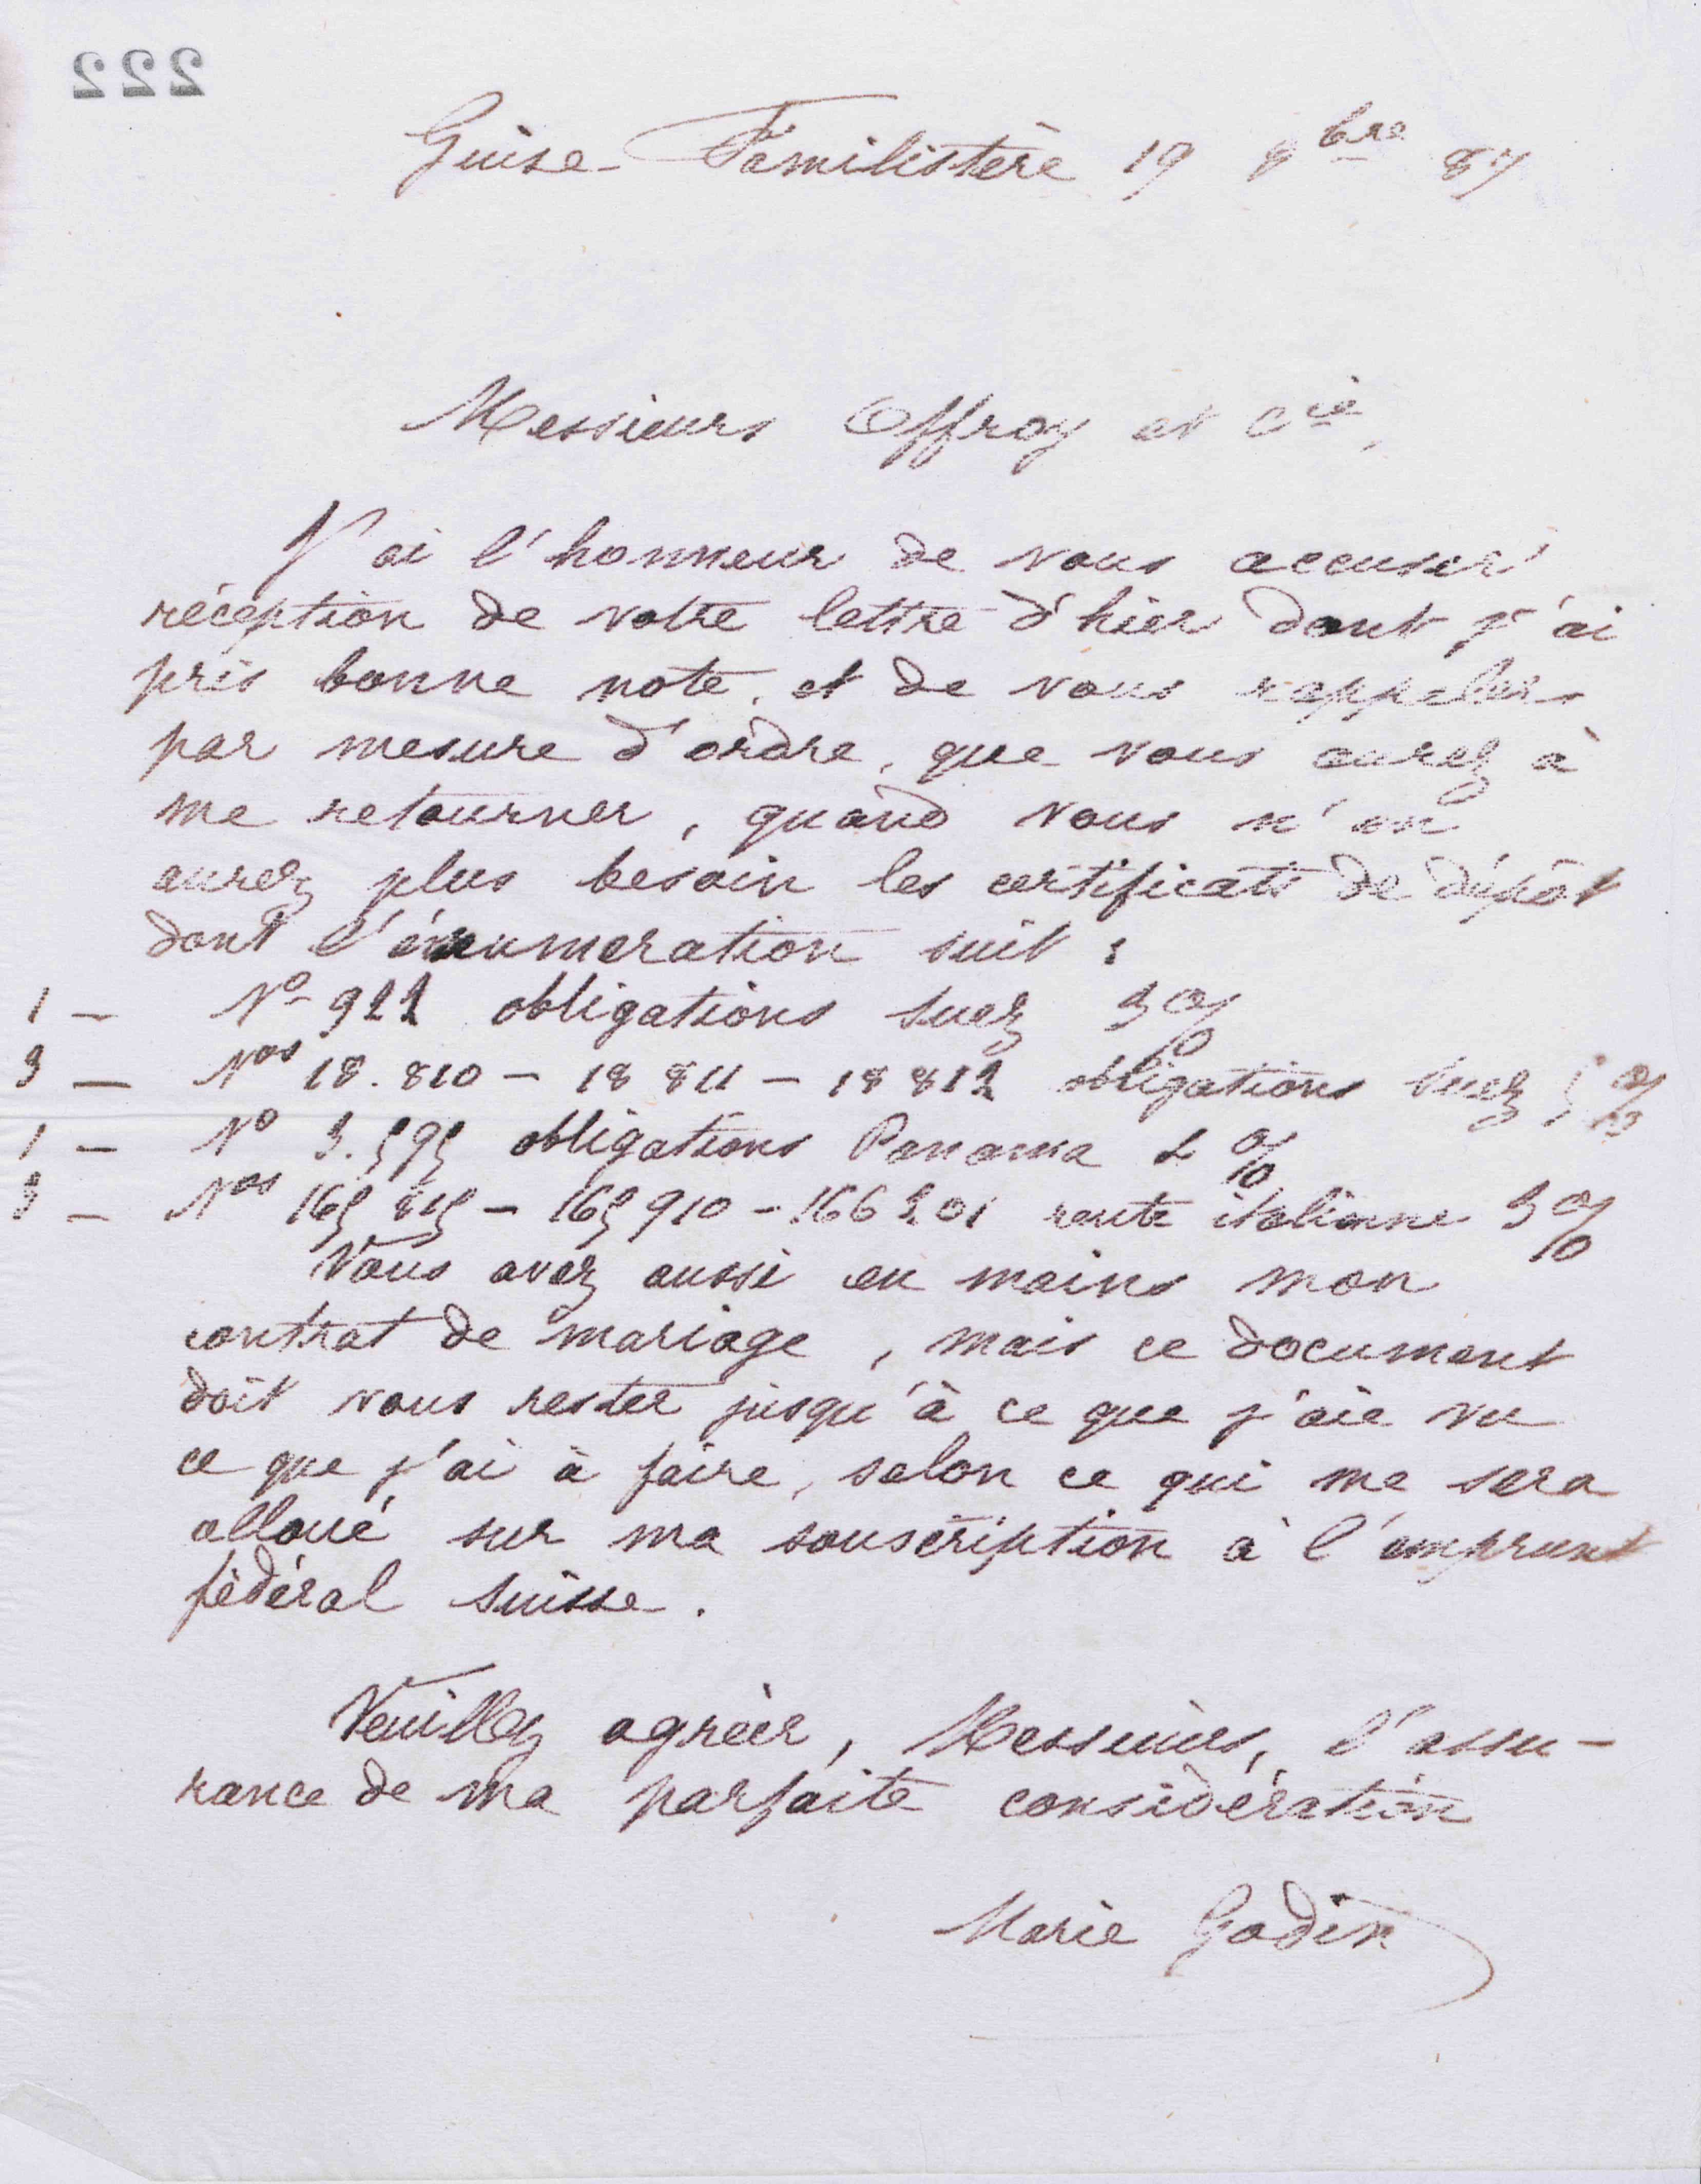 222
Guise - Familistère 19 8bre 87
Messieurs Offroy et Cie,
J'ai l'honneur de vous accuser
réception de votre lettre d'hier dont j'ai
pris bonne note, et de vous rappeler
par mesure d'ordre, que vous aurez à
me retourner, quand vous n'en
aurez plus besoin les certificats de dépôt
dont l'énumeration suit :
1 - No 922 obligations Suez 3 %
3 - Nos 18.810 - 18 811 - 18 812 obligations Suez 5 %
1 - No 3.595 obligations Panama %
3 - Nos 165 815 - 165 910 - 166 201 rente italienne 5 %
Vous avez aussi en mains mon
contrat de mariage, mais ce document
doit vous rester jusqu'à ce que j'aie vu
ce que j'ai à faire, selon ce qui me sera
alloué sur ma souscription à l'emprunt
fédéral suisse.
Veuillez agréer, Messieurs, l'assu-
rance de ma parfaite considération
Marie Godin